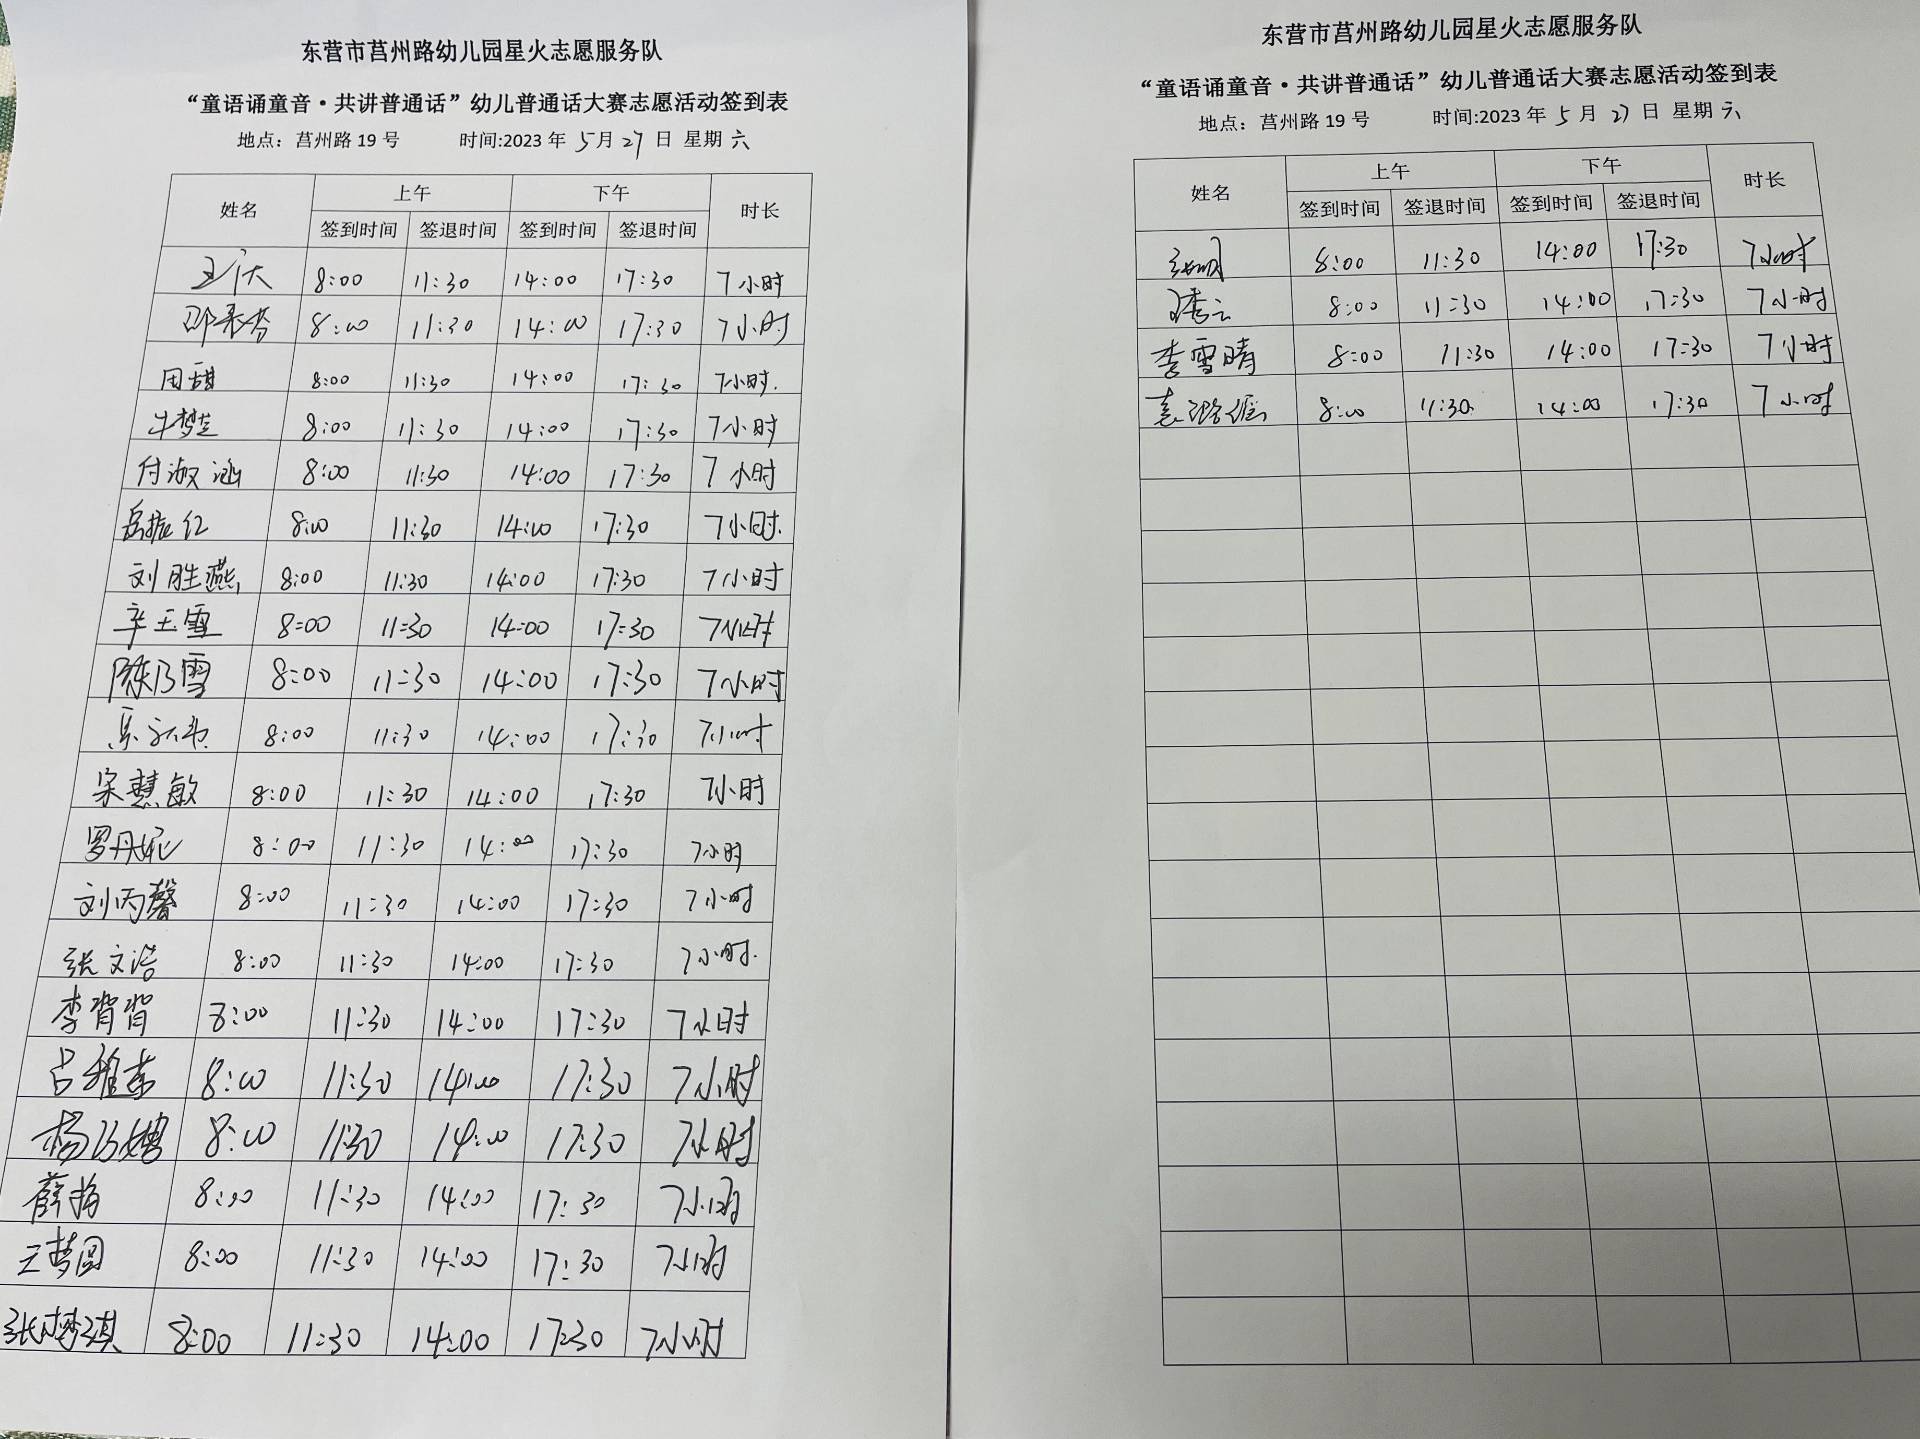 东营市莒州路幼儿园星火志愿服务队
“童语诵童音·共讲普通话”幼儿普通话大赛志愿活动签到表
地点：莒州路 19 号 时间:2023 年 5 月 27 日 星期 六
姓名 上午 下午 时长
签到时间 签退时间 签到时间 签退时间
8:00 11:30 14:00 17:30 7小时
8:00 11:30 14:00 17:30 7小时
田甜 8:00 11:30 14:00 17:30 7小时.
牛梦芝 8:00 11:30 14:00 17:30 7小时
付淑涵 8:00 11:30 14:00 17:30 7小时
岳振红 8:00 11:30 14:00 17:30 7小时.
刘胜燕 8:00 11:30 14:00 17:30 7小时
辛玉雪 8:00 11:30 14:00 17:30 7小时
陈乃雪 8:00 11:30 14:00 17:30 7小时
8:00 11:30 14:00 17:30 7小时
宋慧敏 8:00 11:30 14:00 17:30 7小时
罗丹妮 8:00 11:30 14:00 17:30 7小时
刘丙馨 8:00 11:30 14:00 17:30 7小时
张文浩 8:00 11:30 14:00 17:30 7小时.
李肖肖 8:00 11:30 14:00 17:30 7小时
8:00 11:30 14:00 17:30 7小时
杨乃娉 8:00 11:30 14:00 17:30 7小时
薛梅 8:00 11:30 14:00 17:30 7小时
王梦圆 8:00 11:30 14:00 17:30 7小时
张梦琪 8:00 11:30 14:00 17:30 7小时
东营市莒州路幼儿园星火志愿服务队
“童语诵童音·共讲普通话”幼儿普通话大赛志愿活动签到表
地点：莒州路 19 号 时间:2023 年 5 月 27 日 星期 六
姓名 上午 下午 时长
签到时间 签退时间 签到时间 签退时间
8:00 11:30 14:00 17:30 7小时
8:00 11:30 14:00 17:30 7小时
李雪晴 8:00 11:30 14:00 17:30 7小时
8:00 11:30 14:00 17:30 7小时